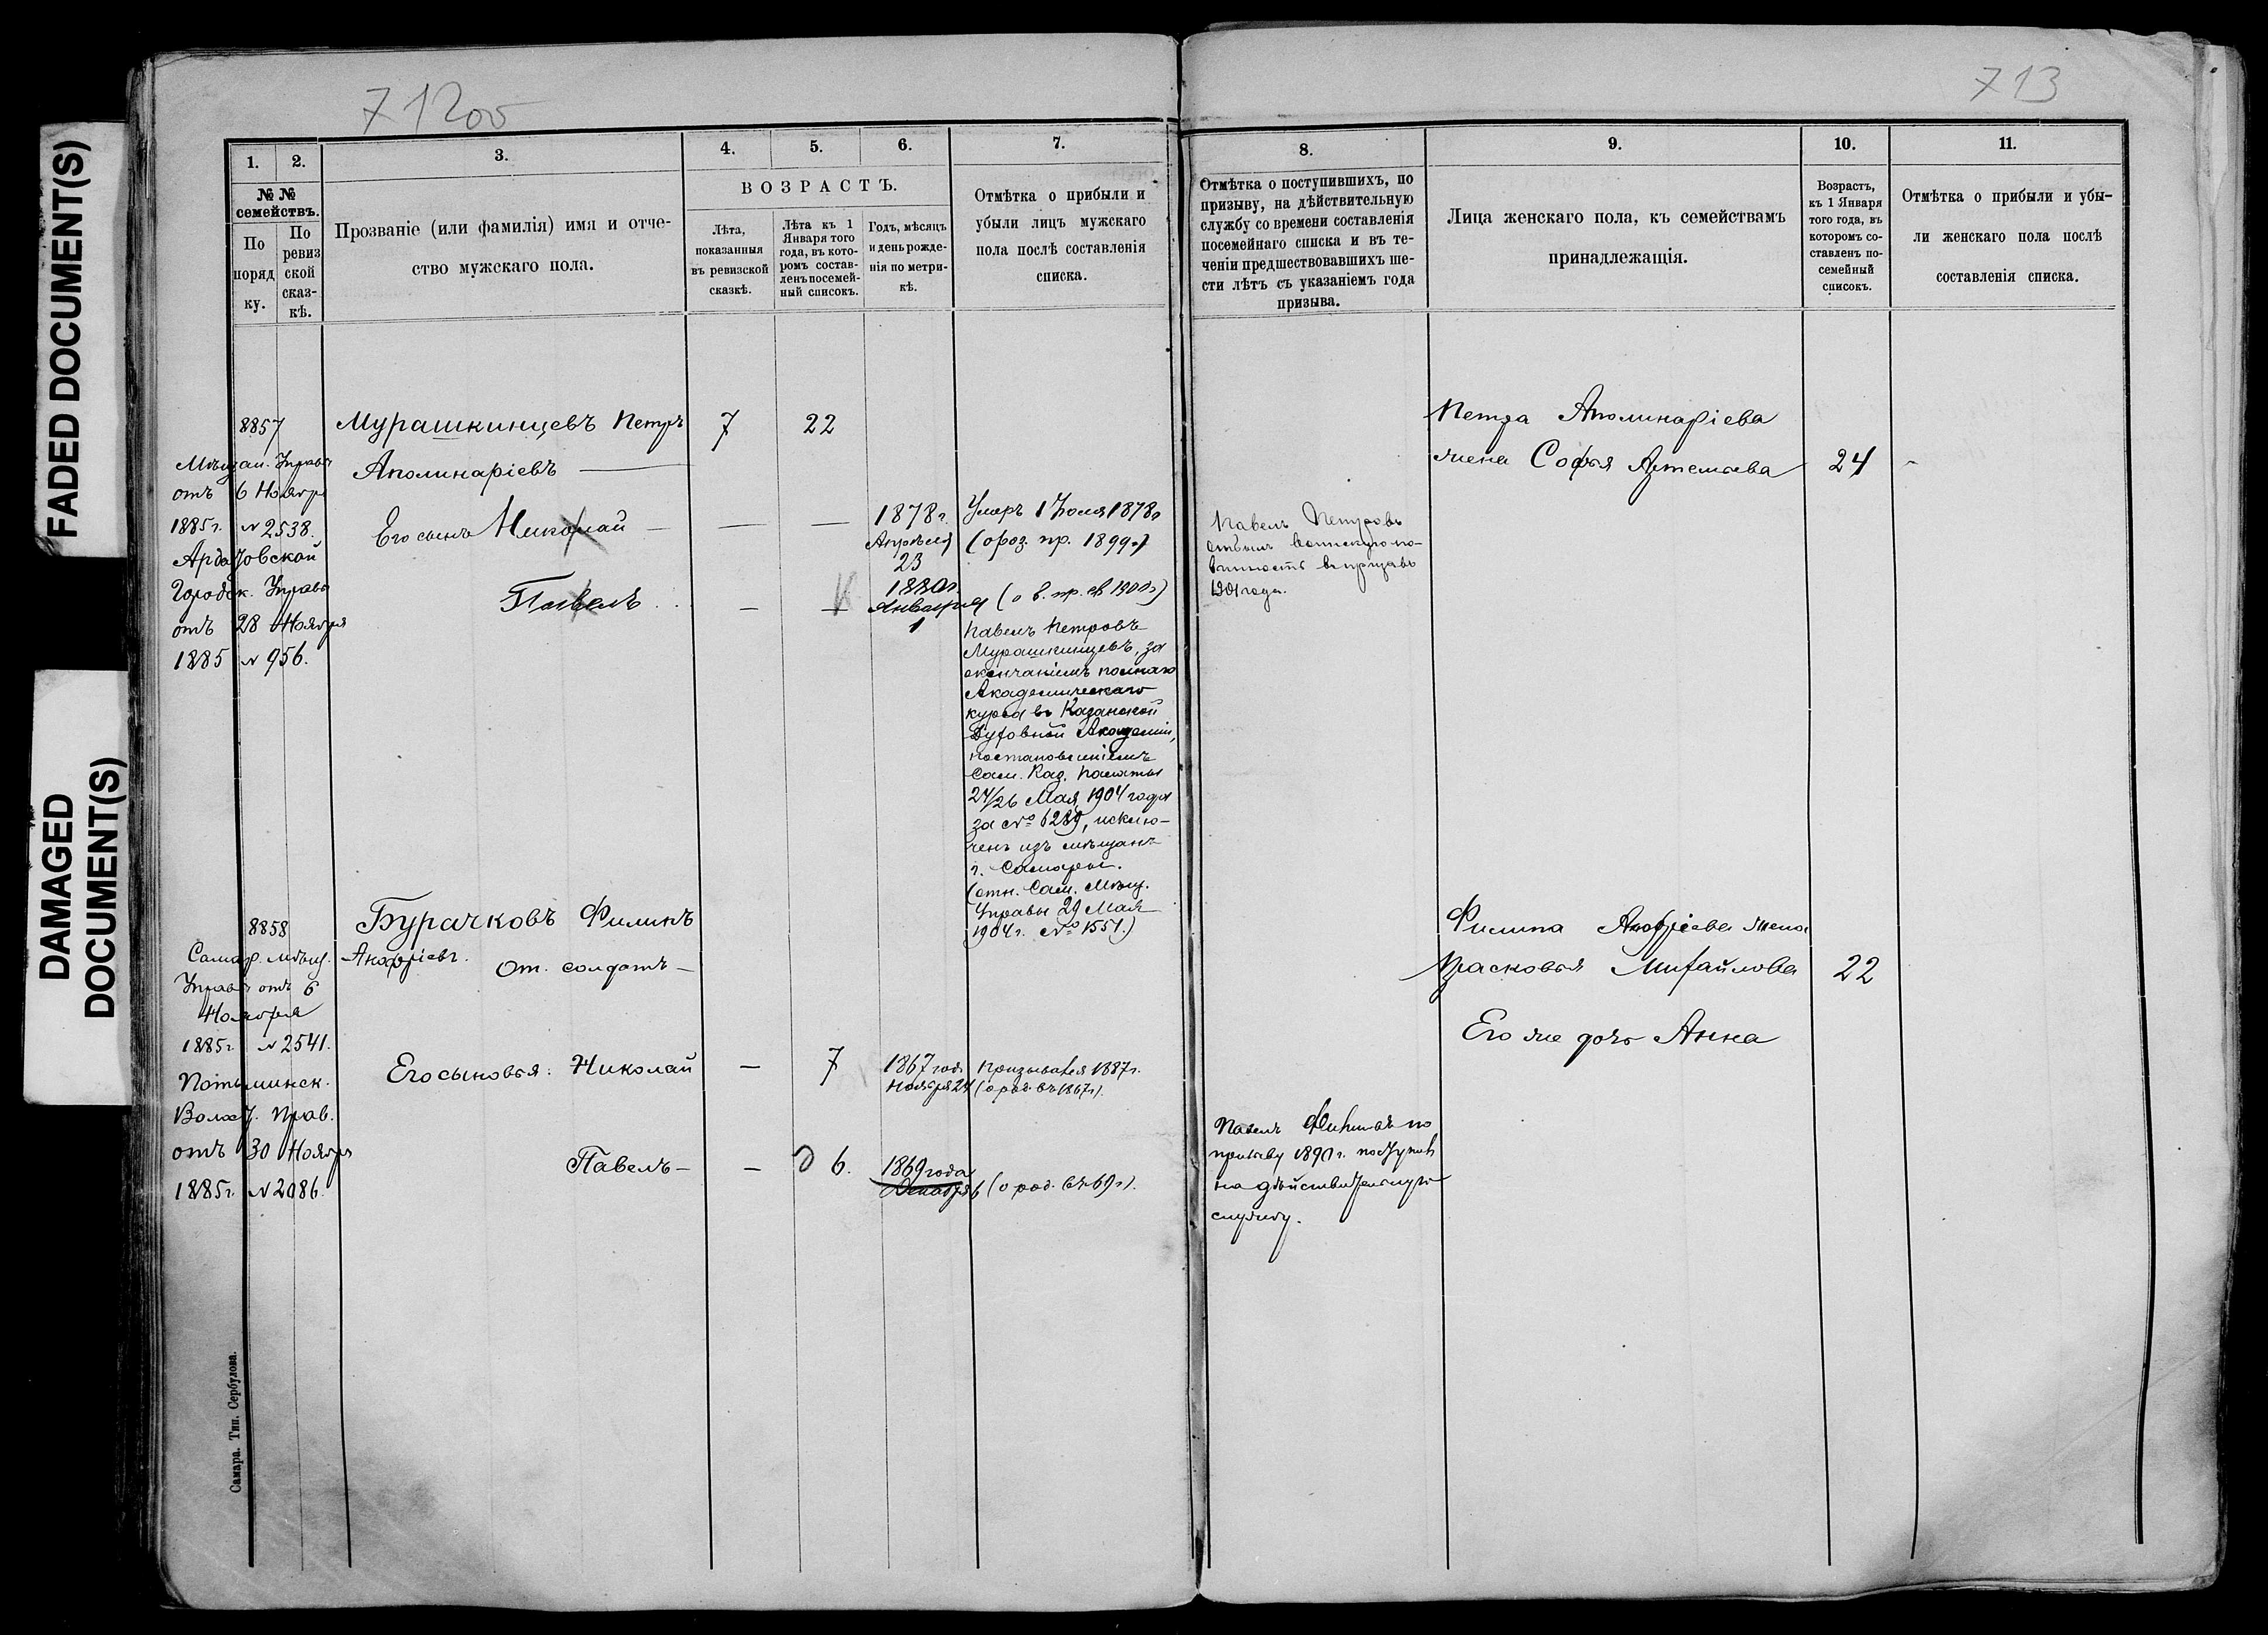 FADED DOCUMENT(S)
DAMAGED
DOCUMENT(S)
712об
1.
2.
3.
4.
5.
6.
7.
№ №
семействъ.
По
поряд
ку.
По
ревиз
ской
сказ-
кѣ.
Прозваніе (или фамилія) имя и отче-
ство мужскаго пола.
ВОЗРАСТЪ.
Лѣта,
показанныя
въ ревизской
сказкѣ.
Лѣта къ 1
Января того
года, въ кото-
ромъ состав-
ленъ посемей-
ный списокъ.
Годъ, мѣсяцъ
и день рожде-
нія по метри-
кѣ.
Отмѣтка о прибыли и
убыли лицъ мужскаго
пола послѣ составленія
списка.
8857
Мѣщан. Управы
отъ 6 Ноября
1885 г. № 2538.
Ардатовской
Городск. Управы
отъ 28 Ноября
1885 № 956.
Мурашкинцевъ Петръ
Аполинаріевъ
7
22
Его сынъ Николай
1878 г.
Апрѣля
23
Умеръ 1 Іюля 1878 г.
пр. 1899 г.)
Павелъ
1880 г.
Января
1
(о в. пр. въ 1900 г.)
Павелъ Петровъ
Мурашкинцевъ, за
окончаніемъ полнаго
Академическаго
курса въ Казанской
Духовной Академіи,
постановленіемъ
Сам. Каз. Палаты
24/26 Мая 1904 года
за № 6289, исклю-
ченъ изъ мѣщанъ
г. Самары.
(отн. Сам. Мѣщ.
Управы 29 Мая
1904 г. № 1551.)
8858
Самар. мѣщ.
Управы отъ 6
Ноября
1885 г. № 2541.
Потьминск.
Волост. Прав.
отъ 30 Ноября
1885 г. № 2086.
Бурачковъ Филипъ
Анофріевъ. От. солдатъ
Его сыновья: Николай
—
7
1867 год
Ноября 24
Призывался 1887 г.
(о род. въ 1867 г.)
Павелъ
—
6.
1869 года
Декабря 6
(о род. въ 69 г.)
Самара. Тип. Сербулова.
713
8.
9.
10.
11.
Отмѣтка о поступившихъ, по
призыву, на дѣйствительную
службу со времени составленія
посемейнаго списка и въ те-
ченіи предшествовавшихъ ше-
сти лѣтъ съ указаніемъ года
призыва.
Лица женскаго пола, къ семействамъ
принадлежащія.
Возрастъ,
къ 1 Января
того года, въ
которомъ со-
ставленъ по-
семейный
списокъ.
Отмѣтка о прибыли и убы-
ли женскаго пола послѣ
составленія списка.
Петра Аполинаріева
жена Софья Артемьева
24
Павелъ Петровъ
отбылъ воинскую по-
винность въ призывъ
1901 года.
Филипа Анофріева жена
Прасковья Михайлова
22
Его же дочь Анна
Павелъ Филиповъ по
призыву 1890 г. поступилъ
на дѣйствительную
службу.